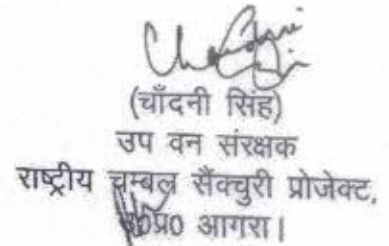 (चाँदनी सिंह)
उप वन संरक्षक
राष्ट्रीय चम्बल सैंक्चुरी प्रोजेक्ट,
उ0प्र0 आगरा।